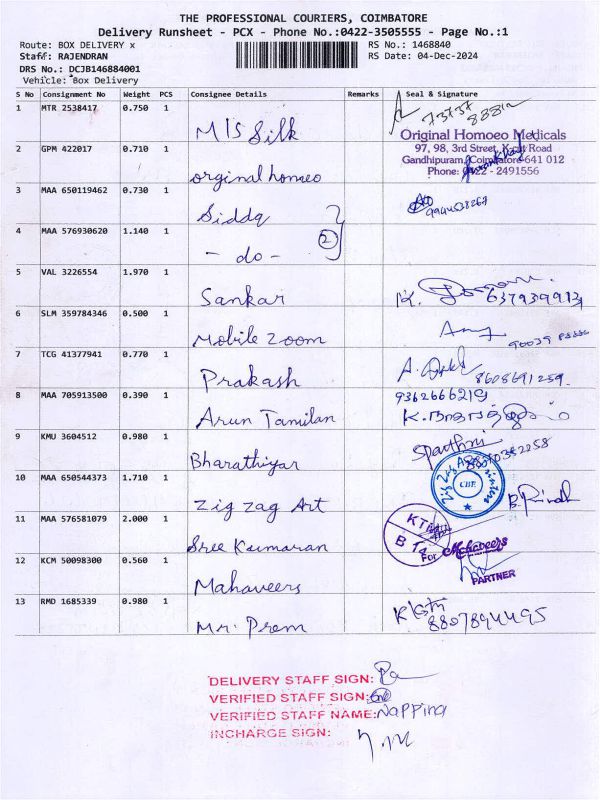 THE PROFESSIONAL COURIERS, COIMBATORE
Delivery Runsheet - PCX - Phone No.:0422-3505555 - Page No.:1
Route: BOX DELIVERY x
RS No.: 1468840
Staff: RAJENDRAN
RS Date: 04-Dec-2024
DRS No.: DCJB146884001
Vehicle: Box Delivery
S No Consignment No Weight PCS Consignee Details Remarks Seal & Signature
1 MTR 2538417 0.750 1 M/S Silk
Original Homoeo Medicals
97, 98, 3rd Street, K-cut Road
Gandhipuram, Coimbatore-641 012
Phone: 0422 - 2491556
2 GPM 422017 0.710 1 orginal homeo
3 MAA 650119462 0.730 1 Siddq
9944538267
4 MAA 576930620 1.140 1 - do - 2
5 VAL 3226554 1.970 1 Sankar K.
6 SLM 359784346 0.500 1 Mobile Zoom
7 TCG 41377941 0.770 1 Prakash 8608691259
8 MAA 705913500 0.390 1 Arun Tamilan 9362666219
9 KMU 3604512 0.980 1 Bharathiyar
10 MAA 650544373 1.710 1 Zig Zag Art
Zig Zag Art Printers
CBE
11 MAA 576581079 2.000 1 Sree Kumaran
12 KCM 50098300 0.560 1 Mahaveers
For Mahaveers
PARTNER
13 RMD 1685339 0.980 1 Mr. Prem 8807894495
DELIVERY STAFF SIGN:
VERIFIED STAFF SIGN:
VERIFIED STAFF NAME: Nappina
INCHARGE SIGN: